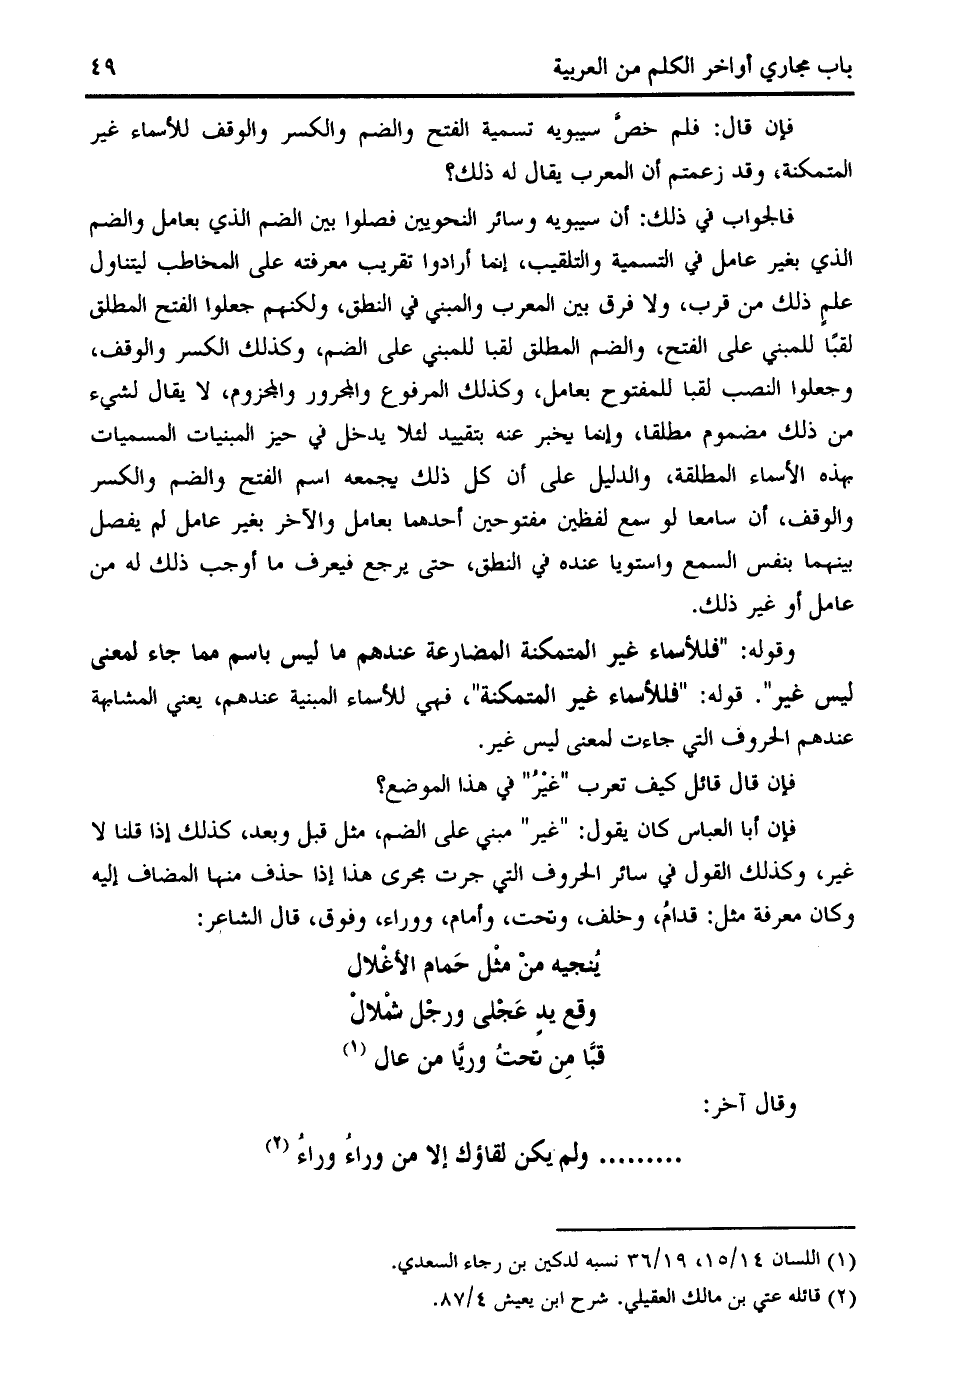 باب مجاري أواخر الكلم من العربية ٤٩
فإن قال: فلم خصَّ سيبويه تسمية الفتح والضم والكسر والوقف للأسماء غير
المتمكنة، وقد زعمتم أن المعرب يقال له ذلك؟
فالجواب في ذلك: أن سيبويه وسائر النحويين فصلوا بين الضم الذي بعامل والضم
الذي بغير عامل في التسمية والتلقيب، إنما أرادوا تقريب معرفته على المخاطب ليتناول
علمٍ ذلك من قرب، ولا فرق بين المعرب والمبني في النطق، ولكنهم جعلوا الفتح المطلق
لقبًا للمبني على الفتح، والضم المطلق لقبا للمبني على الضم، وكذلك الكسر والوقف،
وجعلوا النصب لقبا للمفتوح بعامل، وكذلك المرفوع والمجرور والمجزوم، لا يقال لشيء
من ذلك مضموم مطلقا، وإنما يخبر عنه بتقييد لئلا يدخل في حيز المبنيات المسميات
بهذه الأسماء المطلقة، والدليل على أن كل ذلك يجمعه اسم الفتح والضم والكسر
والوقف، أن سامعا لو سمع لفظين مفتوحين أحدهما بعامل والآخر بغير عامل لم يفصل
بينهما بنفس السمع واستويا عنده في النطق، حتى يرجع فيعرف ما أوجب ذلك له من
عامل أو غير ذلك.
وقوله: "فللأسماء غير المتمكنة المضارعة عندهم ما ليس باسم مما جاء لمعنى
ليس غير". قوله: "فللأسماء غير المتمكنة"، فهي للأسماء المبنية عندهم، يعني المشابهة
عندهم الحروف التي جاءت لمعنى ليس غير.
فإن قال قائل كيف تعرب "غيْرُ" في هذا الموضع؟
فإن أبا العباس كان يقول: "غير" مبني على الضم، مثل قبل وبعد، كذلك إذا قلنا لا
غير، وكذلك القول في سائر الحروف التي جرت مجرى هذا إذا حذف منها المضاف إليه
وكان معرفة مثل: قدامُ، وخلف، وتحت، وأمام، ووراء، وفوق، قال الشاعر:
يُنجيه منْ مثْل حَمام الأغْلال
وقع يدٍ عَجْلى ورجْل شمْلالْ
قبَّا مِن تحتُ وريَّا من عال (١)
وقال آخر:
......... ولم يكن لقاؤك إلا من وراءُ وراءُ (٢)
(١) اللسان ١٥/١٤، ٣٦/١٩ نسبه لدكين بن رجاء السعدي.
(٢) قائله عتي بن مالك العقيلي. شرح ابن يعيش ٨٧/٤.